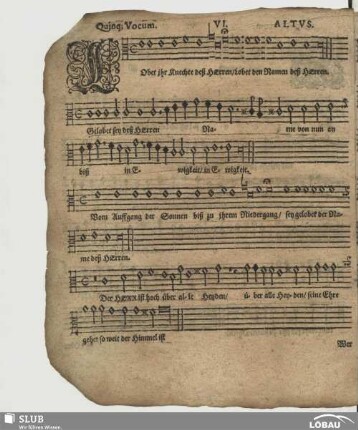 Quinq; Vocum. VI. ALTVS.
LObet jhr Knechte deß HErren/lobet den Namen deß HErren.
Gelobet sey deß HErren Na- me von nun an
biß in E- wigkeit/in E- wigkeit.
Vom Auffgang der Sonnen biß zu jhrem Niedergang/ sey gelobet der Na-
me deß HErren.
Der HERR ist hoch über al-le Heyden/ ü- ber alle Hey-den/ seine Ehre
gehet so weit der Himmel ist
Wer
SLUB
Wir führen Wissen.
LÖBAU